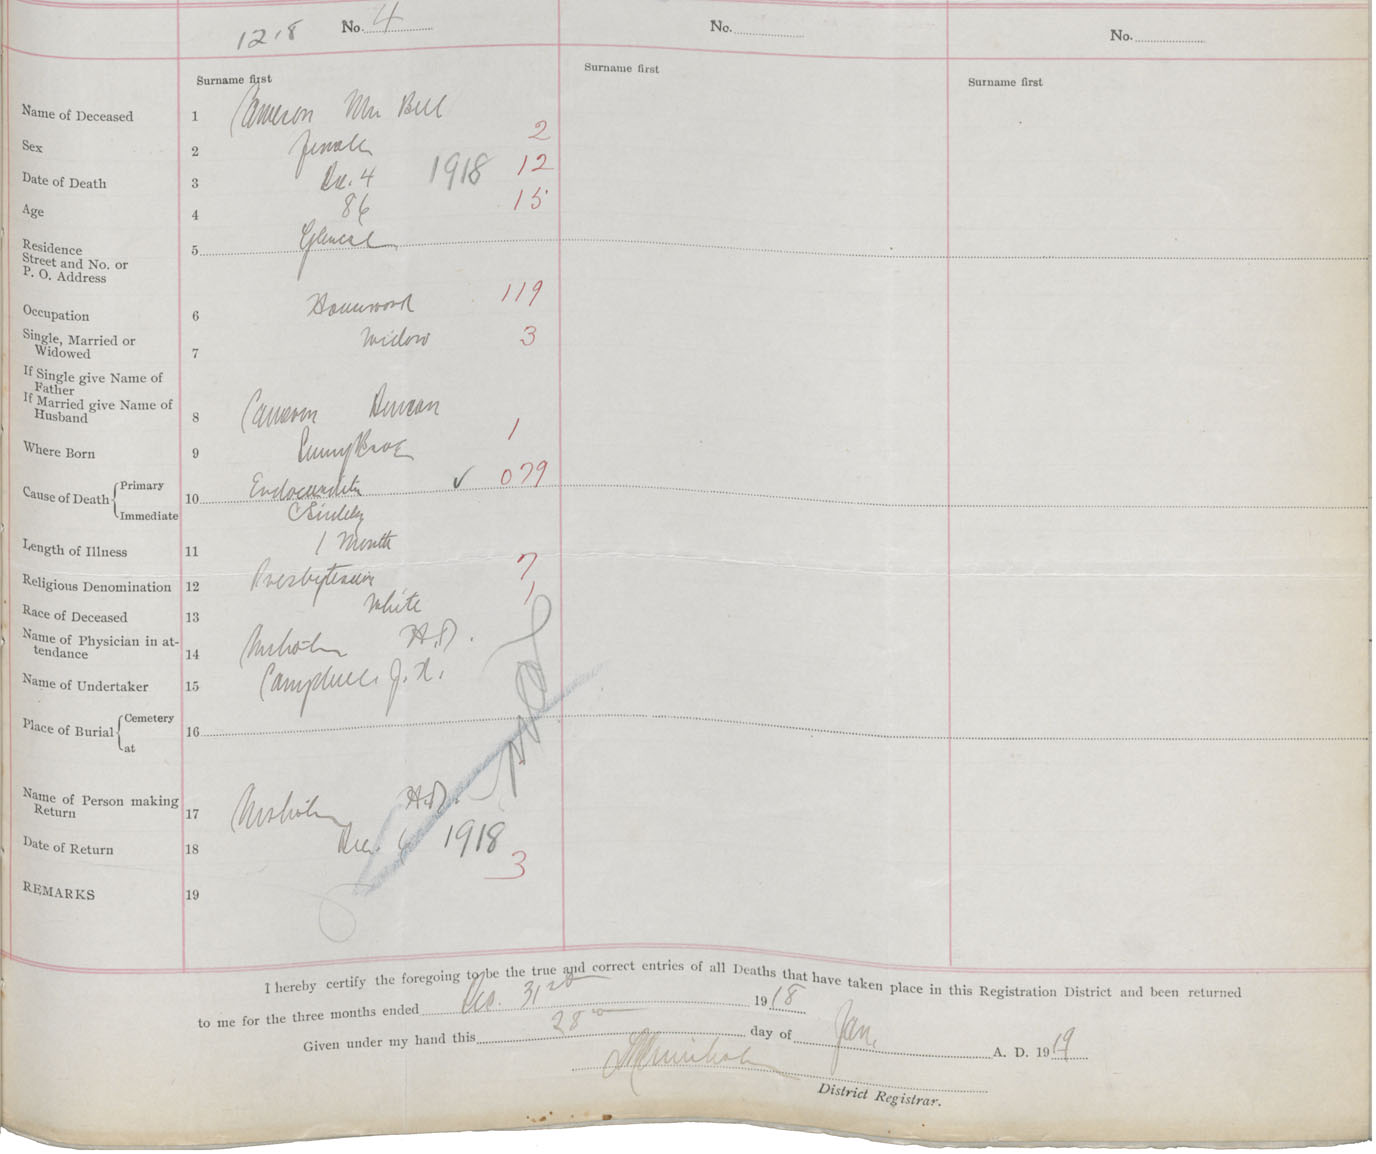 1218 No. 4 No. No.
Surname first Surname first Surname first
Name of Deceased 1 Cameron Mrs Bell
Sex 2 female 2
Date of Death 3 Dec. 4 1918 12
Age 4 86 15
Residence
Street and No. or
P. O. Address 5
Occupation 6 Housework 119
Single, Married or
Widowed 7 Widow 3
If Single give Name of
Father
If Married give Name of
Husband 8 Cameron Duncan
Where Born 9 Sunny Brae 1
Cause of Death Primary 10 Endocarditis ✓ 079
Immediate
Length of Illness 11 1 Month
Religious Denomination 12 Presbyterian 7
Race of Deceased 13 White 1
Name of Physician in at-
tendance 14 H.D.
Name of Undertaker 15 Campbell
Place of Burial Cemetery 16
at
Name of Person making
Return 17 H.D.
Date of Return 18 Dec. 6 1918
3
REMARKS 19
I hereby certify the foregoing to be the true and correct entries of all Deaths that have taken place in this Registration District and been returned
to me for the three months ended Dec. 31st 1918
Given under my hand this 28th day of Jan. A. D. 1919
District Registrar.